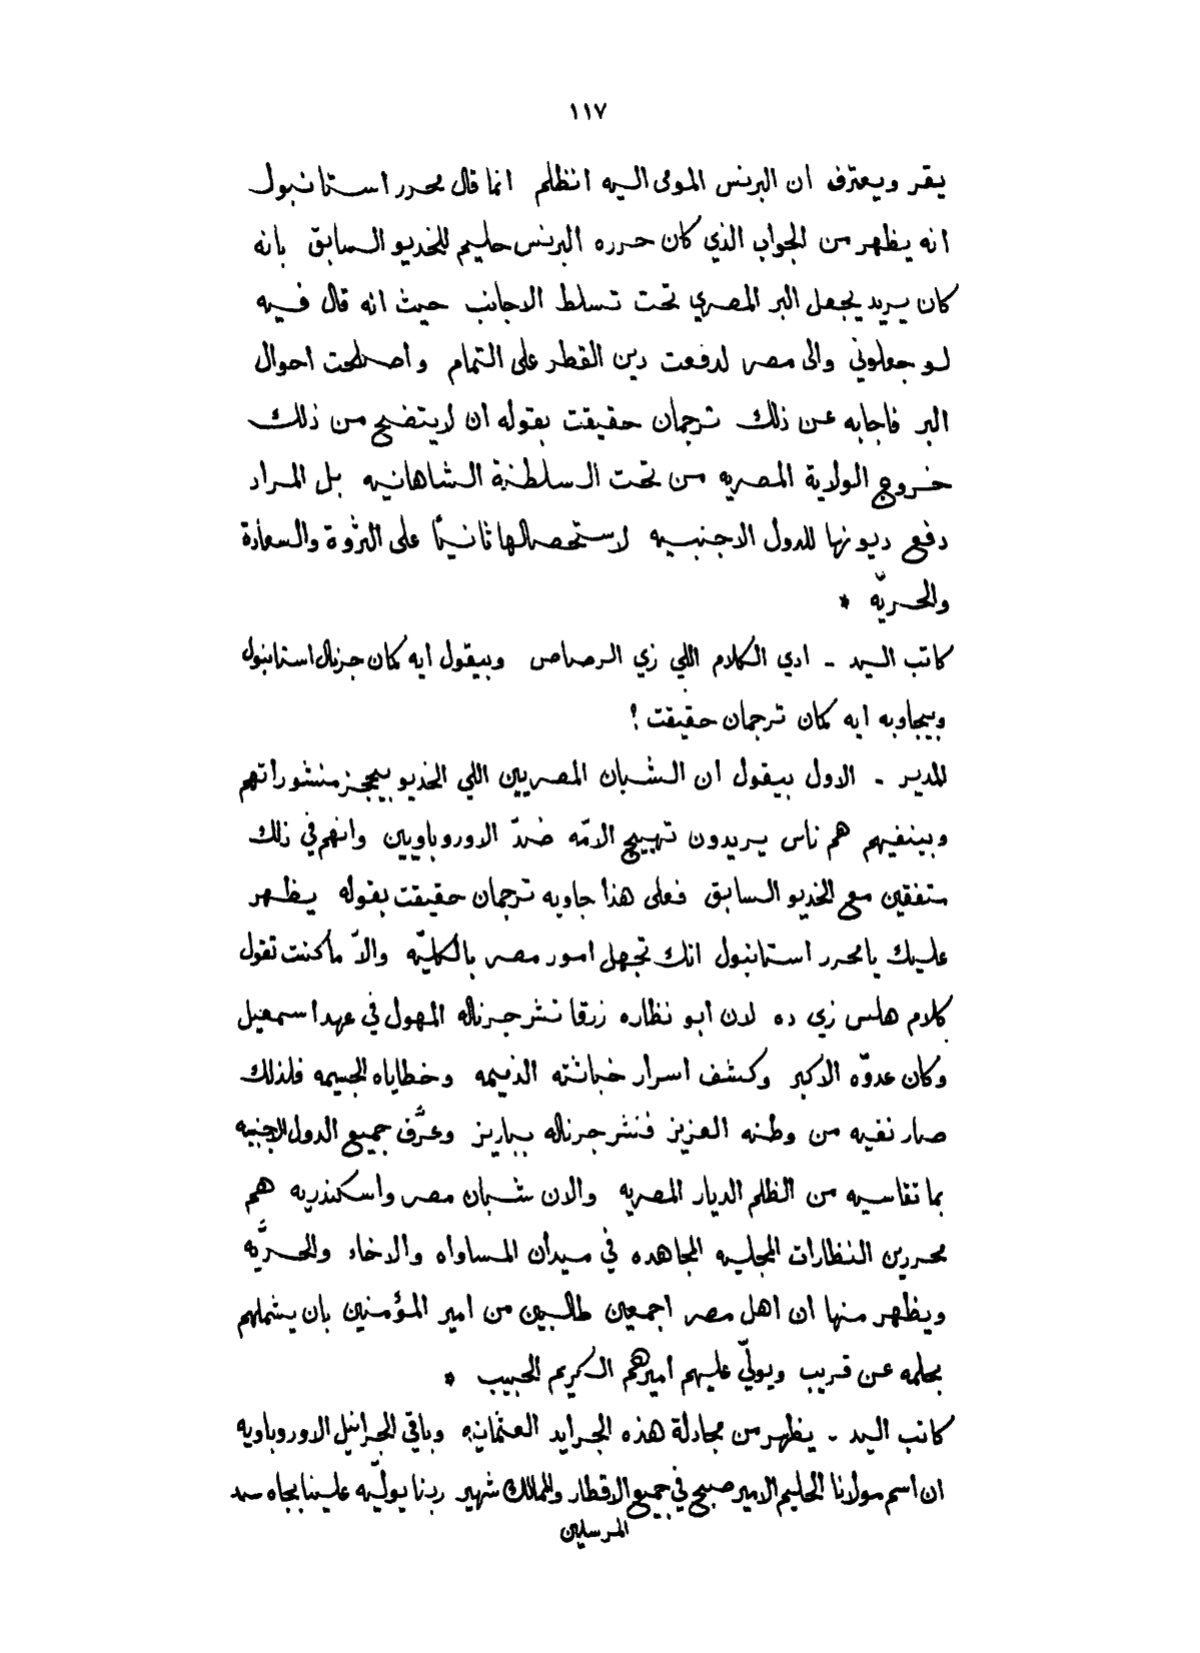 ١١٧
يقر ويعترف ان البرنس المومى اليه انظلم انما قال محرر استانبول
انه يظهر من الجواب الذي كان حرره البرنس حليم للخديو السابق بانه
كان يريد يجعل البر المصري تحت تسلط الاجانب حيث انه قال فيه
لو جعلوني والى مصر لدفعت دين القطر على التمام واصطلحت احوال
البر فاجابه عن ذلك ترجمان حقيقت بقوله ان لايتضح من ذلك
خروج الولاية المصريه من تحت السلطنة الشاهانيه بل المراد
دفع ديونها للدول الاجنبيه لاستحصالها ثانيًا على الثروة والسعادة
والحريّه *
كاتب السيد - ادي الكلام اللي زي الرصاص وبيقول ايه كمان جرنال استانبول
وبيجاوبه ايه كمان ترجمان حقيقت ؟
المدير - الاول بيقول ان الشبان المصريين اللي الخديو بيحجز منشوراتهم
وبينفيهم هم ناس يريدون تهييج الامّه ضدّ الاوروباويين وانهم في ذلك
متفقين مع الخديو السابق فعلى هذا جاوبه ترجمان حقيقت بقوله يظهر
عليك يا محرر استانبول انك تجهل امور مصر بالكليّه والاّ ما كنت تقول
كلام هلس زي ده لان ابو نظاره زرقا نشر جرناله المهول في عهد اسمعيل
وكان عدوّه الاكبر وكشف اسرار خباثته الذميمه وخطاياه الجسيمه فلذلك
صار نفيه من وطنه العزيز فنشر جرناله بباريز وعرَّف جميع الدول الاجنبيه
بما تقاسيه من الظلم الديار المصريه والان شبان مصر واسكندريه هم
محررين النظارات المجليه المجاهده في ميدان المساواه والاخاء والحريَّه
ويظهر منها ان اهل مصر اجمعين طالبين من امير المؤمنين بان يشملهم
بحلمه عن قريب ويولّي عليهم اميرهم الكريم الحبيب *
كاتب اليد - يظهر من مجادلة هذه الجرايد العثمانيه وباقي الجرانيل الاوروباويه
ان اسم مولانا الحليم الامير صبح في جميع الاقطار والممالك شهير ربنا يولّيه علينا بجاه سيد
المرسلين